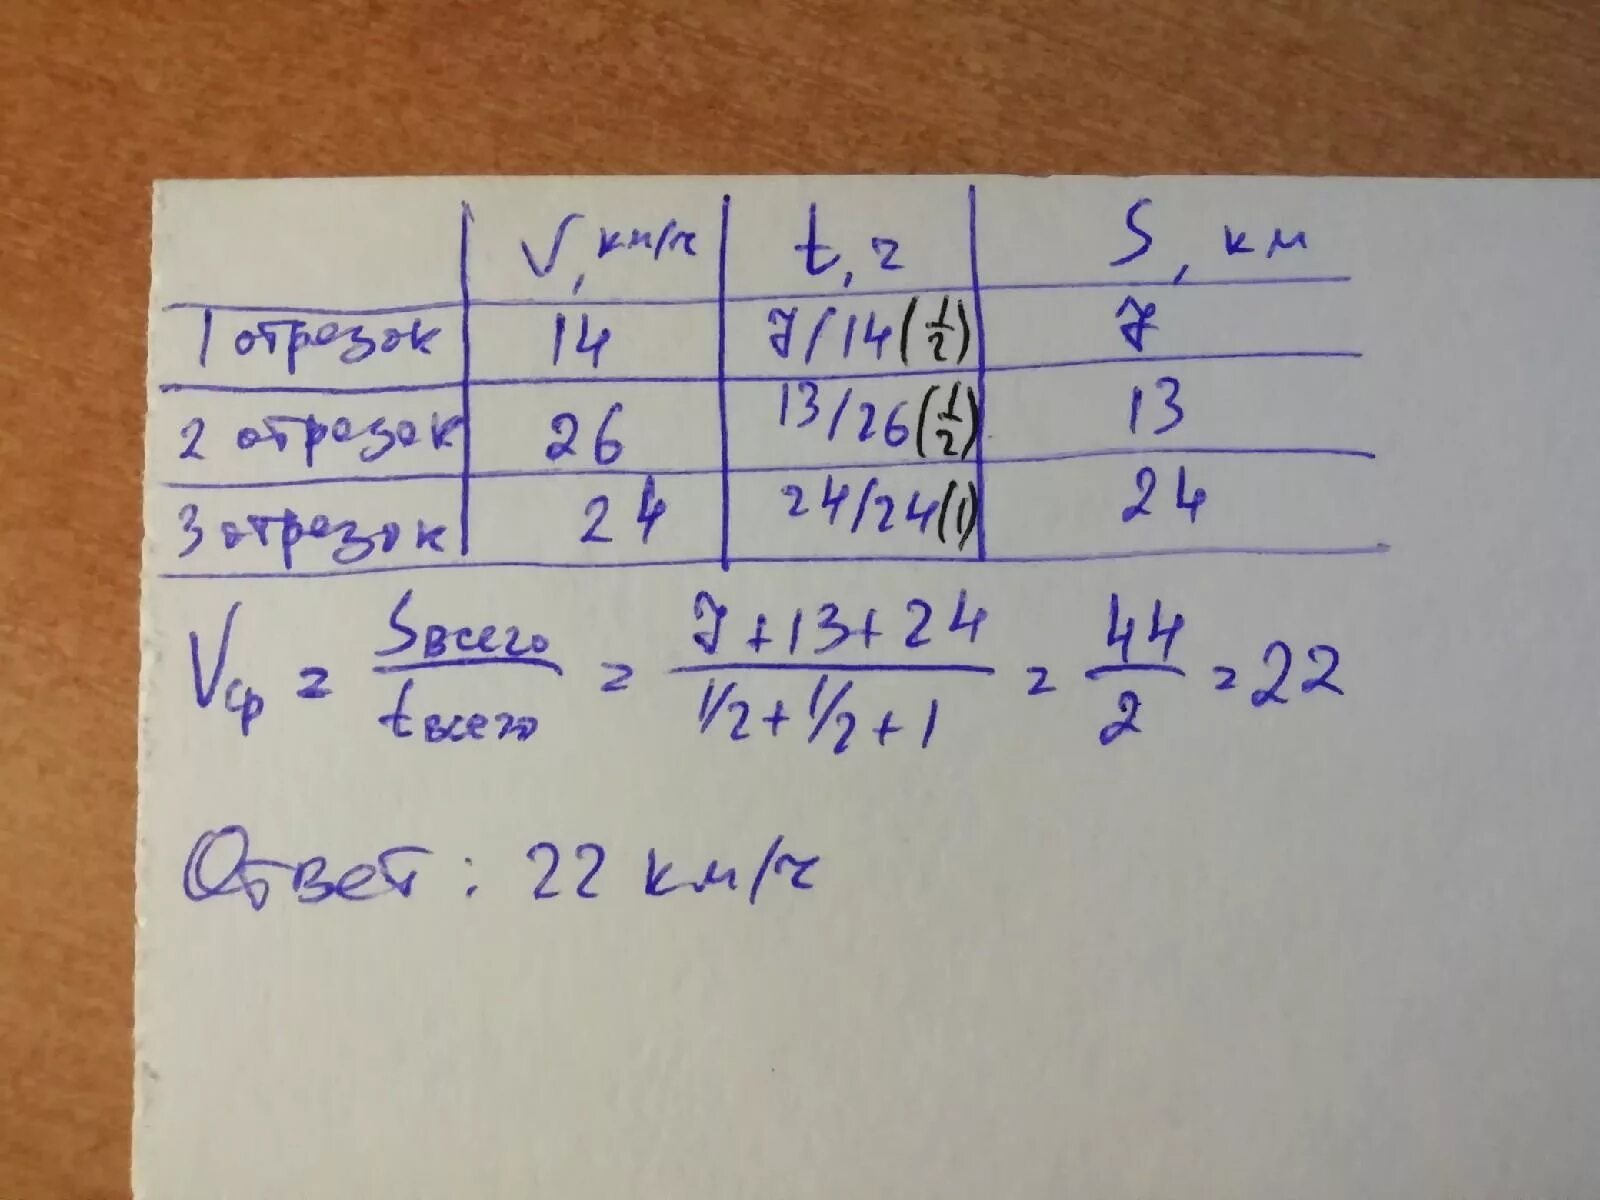 V, км/ч t, ч S, км
1 отрезок 14 7/14(1/2) 7
2 отрезок 26 13/26(1/2) 13
3 отрезок 24 24/24(1) 24
Vср = Sвсего/tвсего = (7+13+24)/(1/2+1/2+1) = 44/2 = 22
Ответ: 22 км/ч